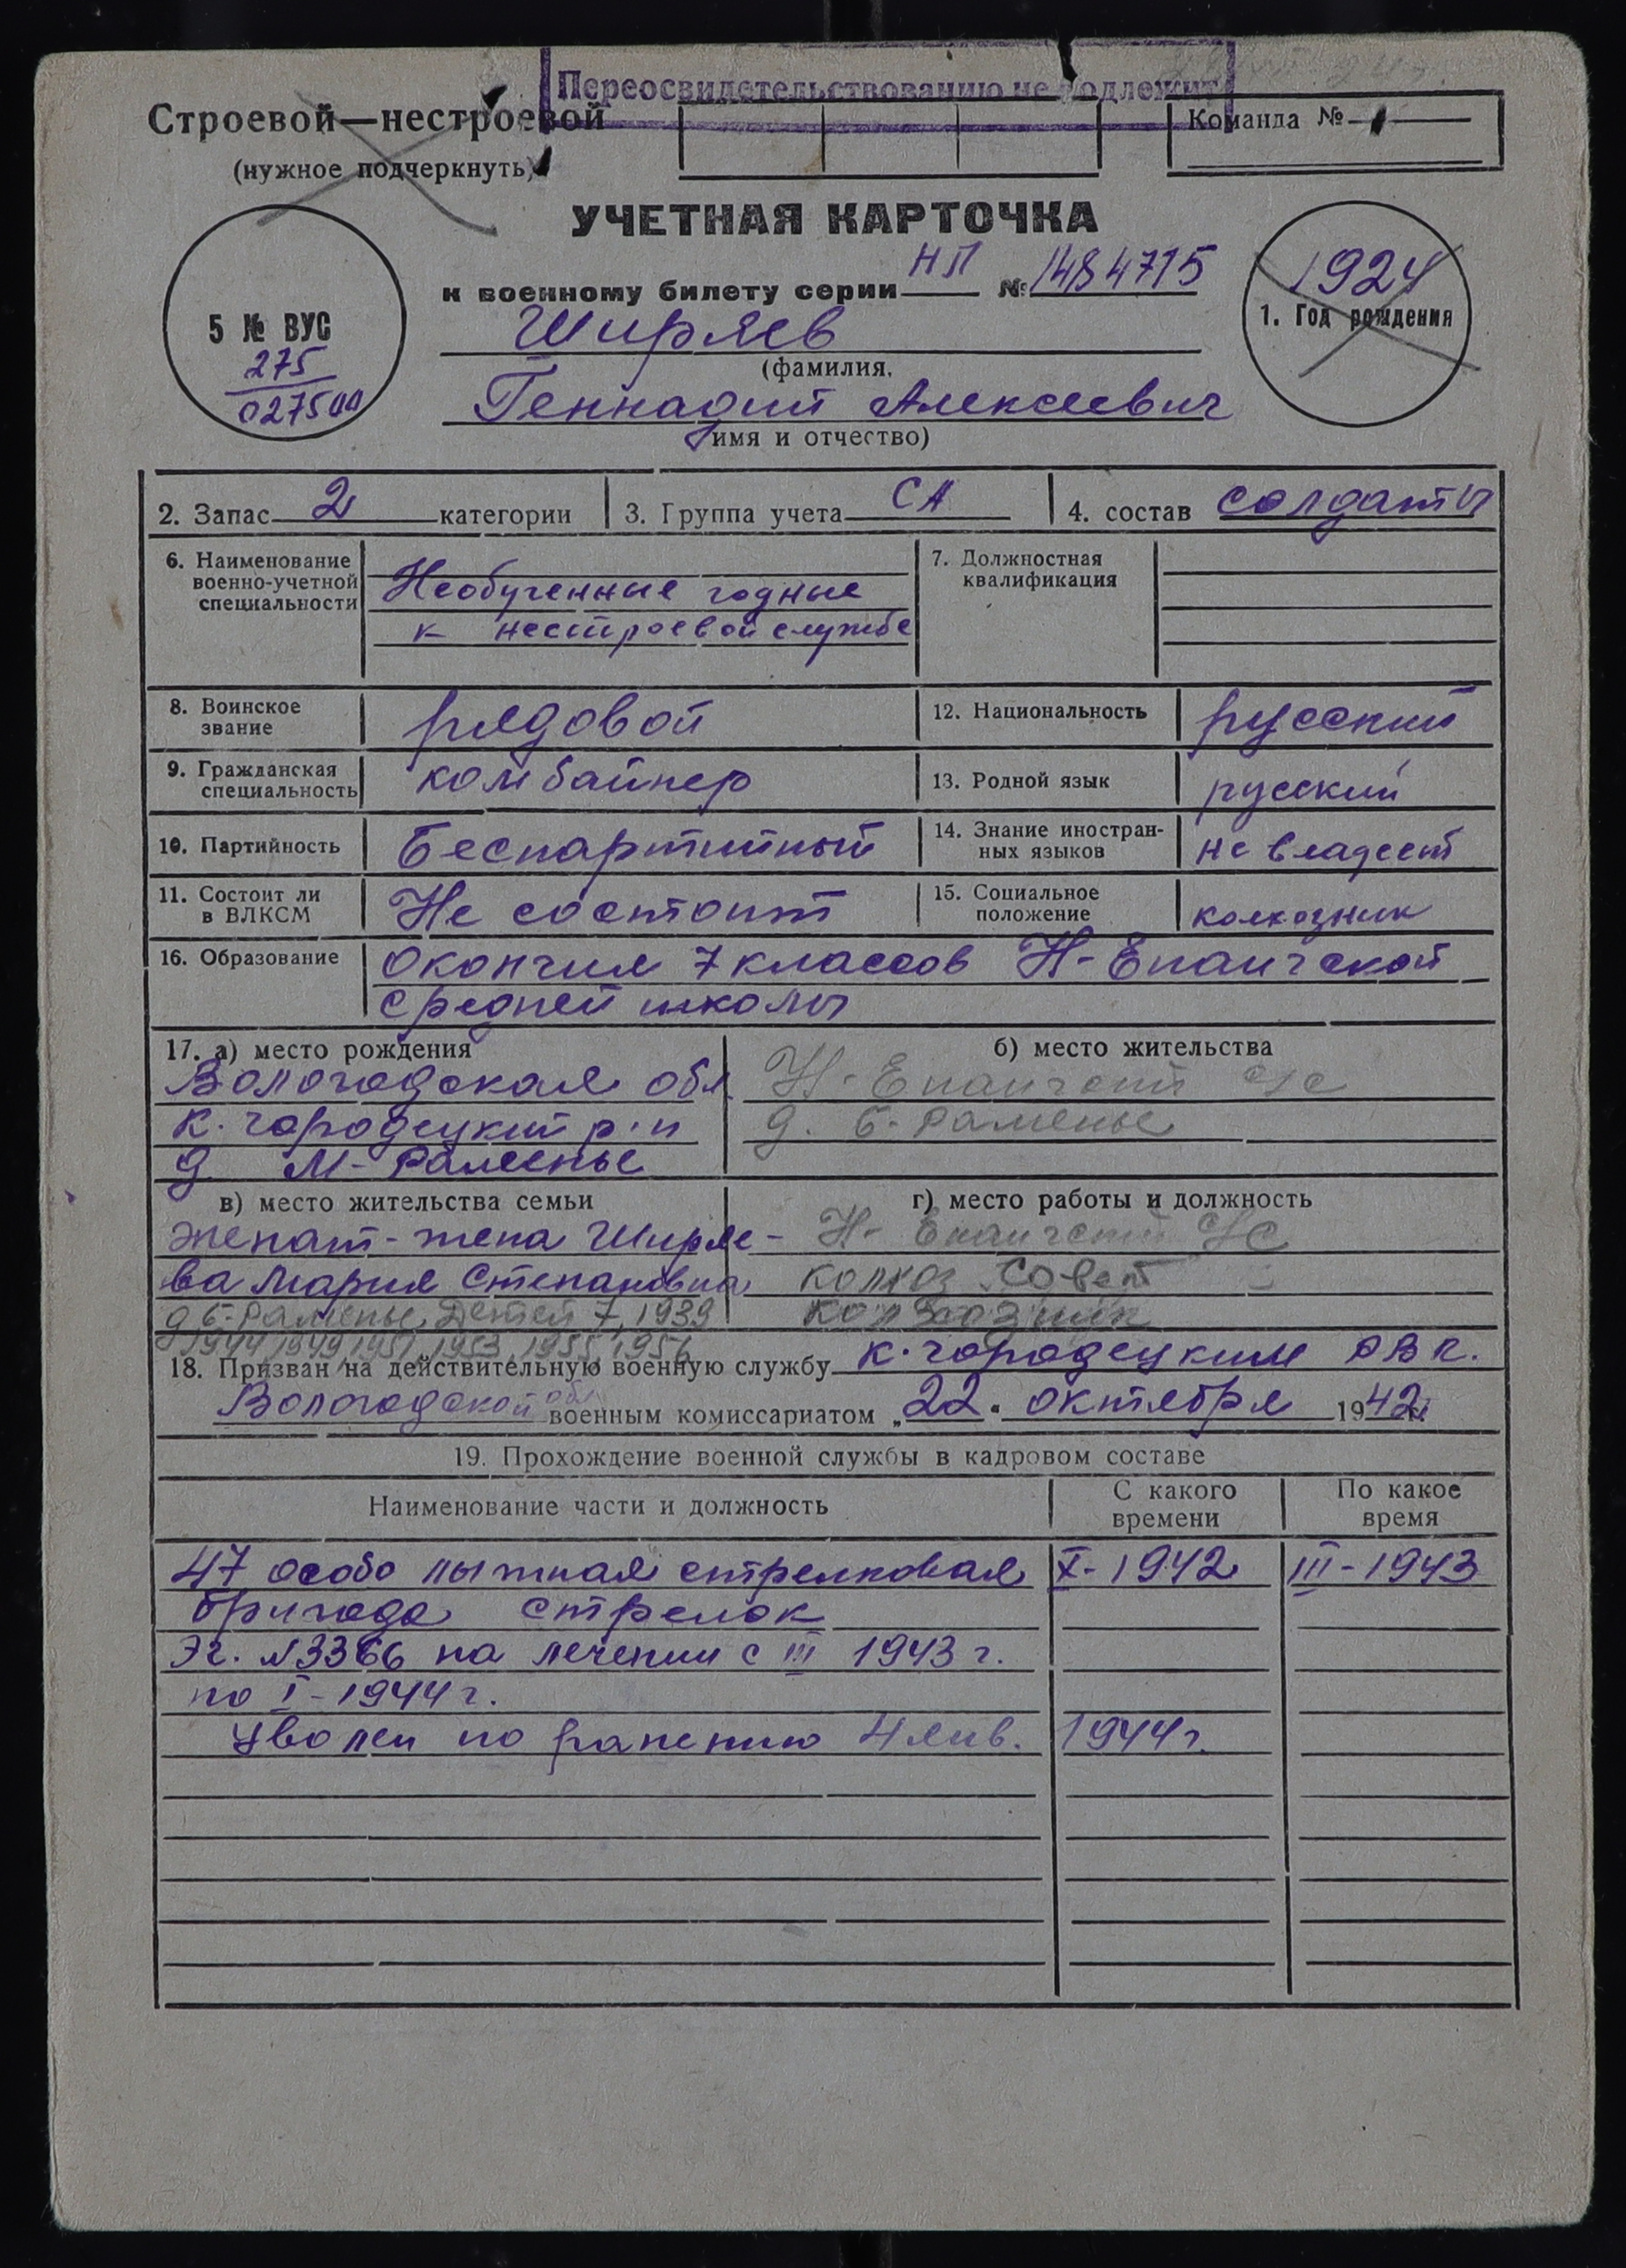 Переосвидетельствованию не подлежит
Строевой—нестроевой
(нужное подчеркнуть)
Команда №
УЧЕТНАЯ КАРТОЧКА
к военному билету серии НП № 1484715
5 № ВУС
275
027500
1924
1. Год рождения
Ширяев
(фамилия,
Геннадий Алексеевич
имя и отчество)
2. Запас 2 категории 3. Группа учета СА 4. состав солдаты
6. Наименование военно-учетной специальности
Необученные годные
к нестроевой службе
7. Должностная квалификация
8. Воинское звание рядовой 12. Национальность русский
9. Гражданская специальность комбайнер 13. Родной язык русский
10. Партийность Беспартийный 14. Знание иностран-ных языков не владеет
11. Состоит ли в ВЛКСМ Не состоит 15. Социальное положение колхозник
16. Образование окончил 7 классов Н-Епанчской
средней школы
17. а) место рождения
Вологодская обл
К. городецкий р-н
д М-Раменье
б) место жительства
Н-Епанчский с/с
д. Б-Раменье
в) место жительства семьи
женат-жена Ширяе-
ва Мария Степановна
д Б-Раменье, Детей 7, 1939
1944, 1949, 1951, 1953, 1955, 1956
г) место работы и должность
Н-Епанчский с/с
колхоз Совет
колхозник
18. Призван на действительную военную службу К. городецким РВК.
Вологодской обл военным комиссариатом „22" октября 1942
19. Прохождение военной службы в кадровом составе
Наименование части и должность С какого времени По какое время
47 особо лыжная стрелковая X-1942 III-1943
бригада стрелок
Эг. №3366 на лечении с III 1943 г.
по I-1944 г.
Уволен по ранению 4 янв. 1944 г.